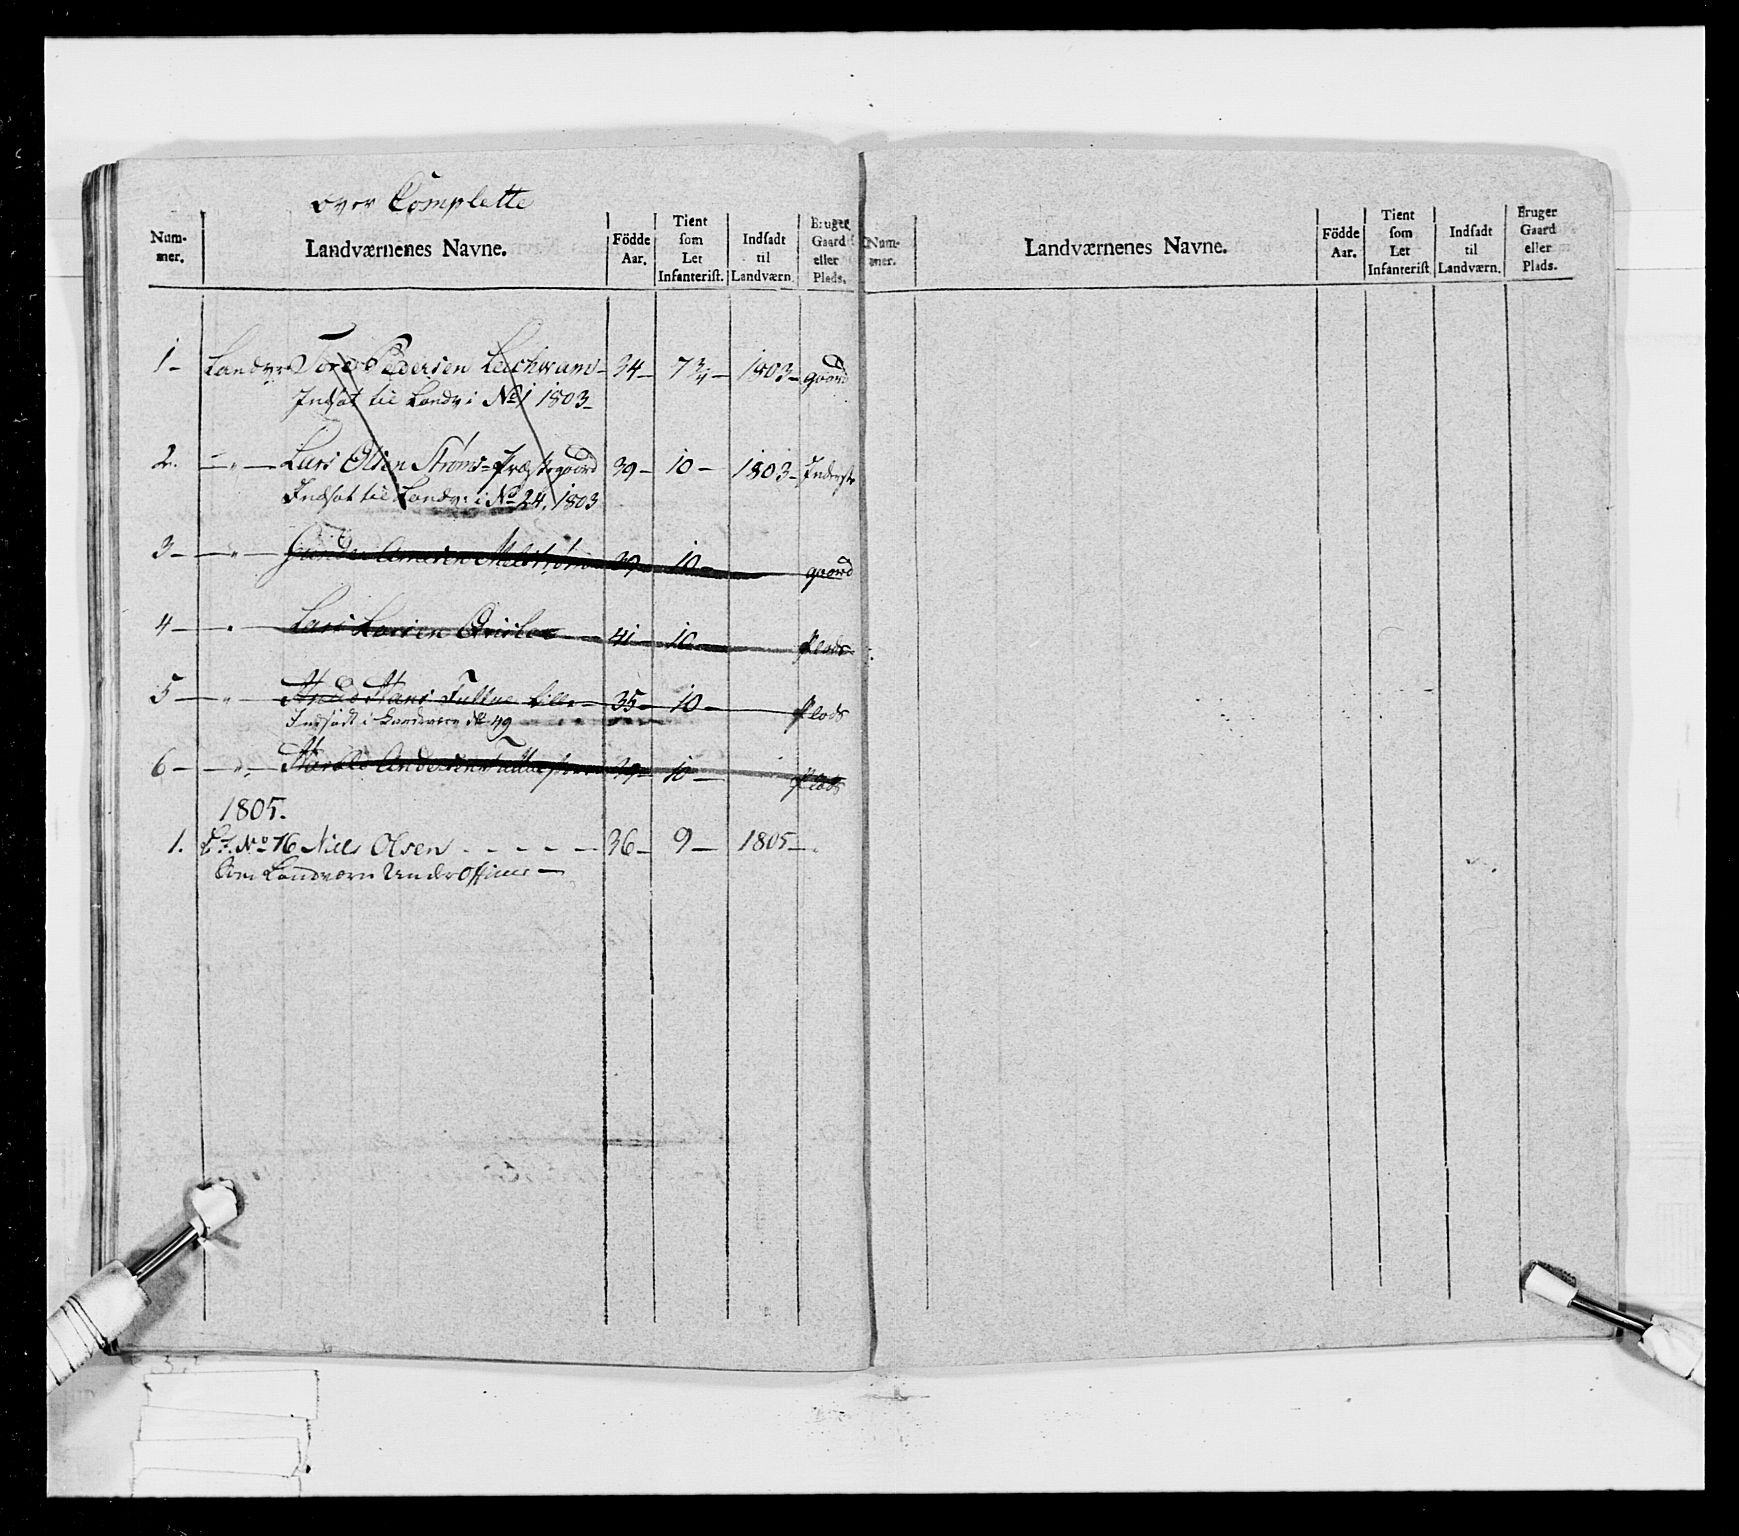 over Complette
Num-
mer.
Landværnenes Navne.
Födde
Aar.
Tient
som
Let
Infanterist.
Indsadt
til
Landværn.
Bruger
Gaard
eller
Plads.
1 - Landv: Tore Pedersen - 34 - 7 3/4 - 1803 - gaard
Indsat til Landv: i No 1 1803 -
2. - " - Lars Olsen Strøms-Præstegaard 39 - 10 - 1803 - Inderste
Indsat til Landv: i No 24. 1803
3 - - " - Gunder 39 - 10 - gaard
4 - " - Lars Larsen 41 - 10 - Plads
5 - " - Knud Hans 35 - 10 - Plads
Indsadt i Landværn No 49
6 - - " - Andersen 39 - 10 - Plads
1805.
1. No 76 Niels Olsen - - - - - 36 - 9 - 1805 -
Som Landværn UnderOfficeer -
Num-
mer.
Landværnenes Navne.
Födde
Aar.
Tient
som
Let
Infanterist
Indsadt
til
Landværn.
Bruger
Gaard
eller
Plads.